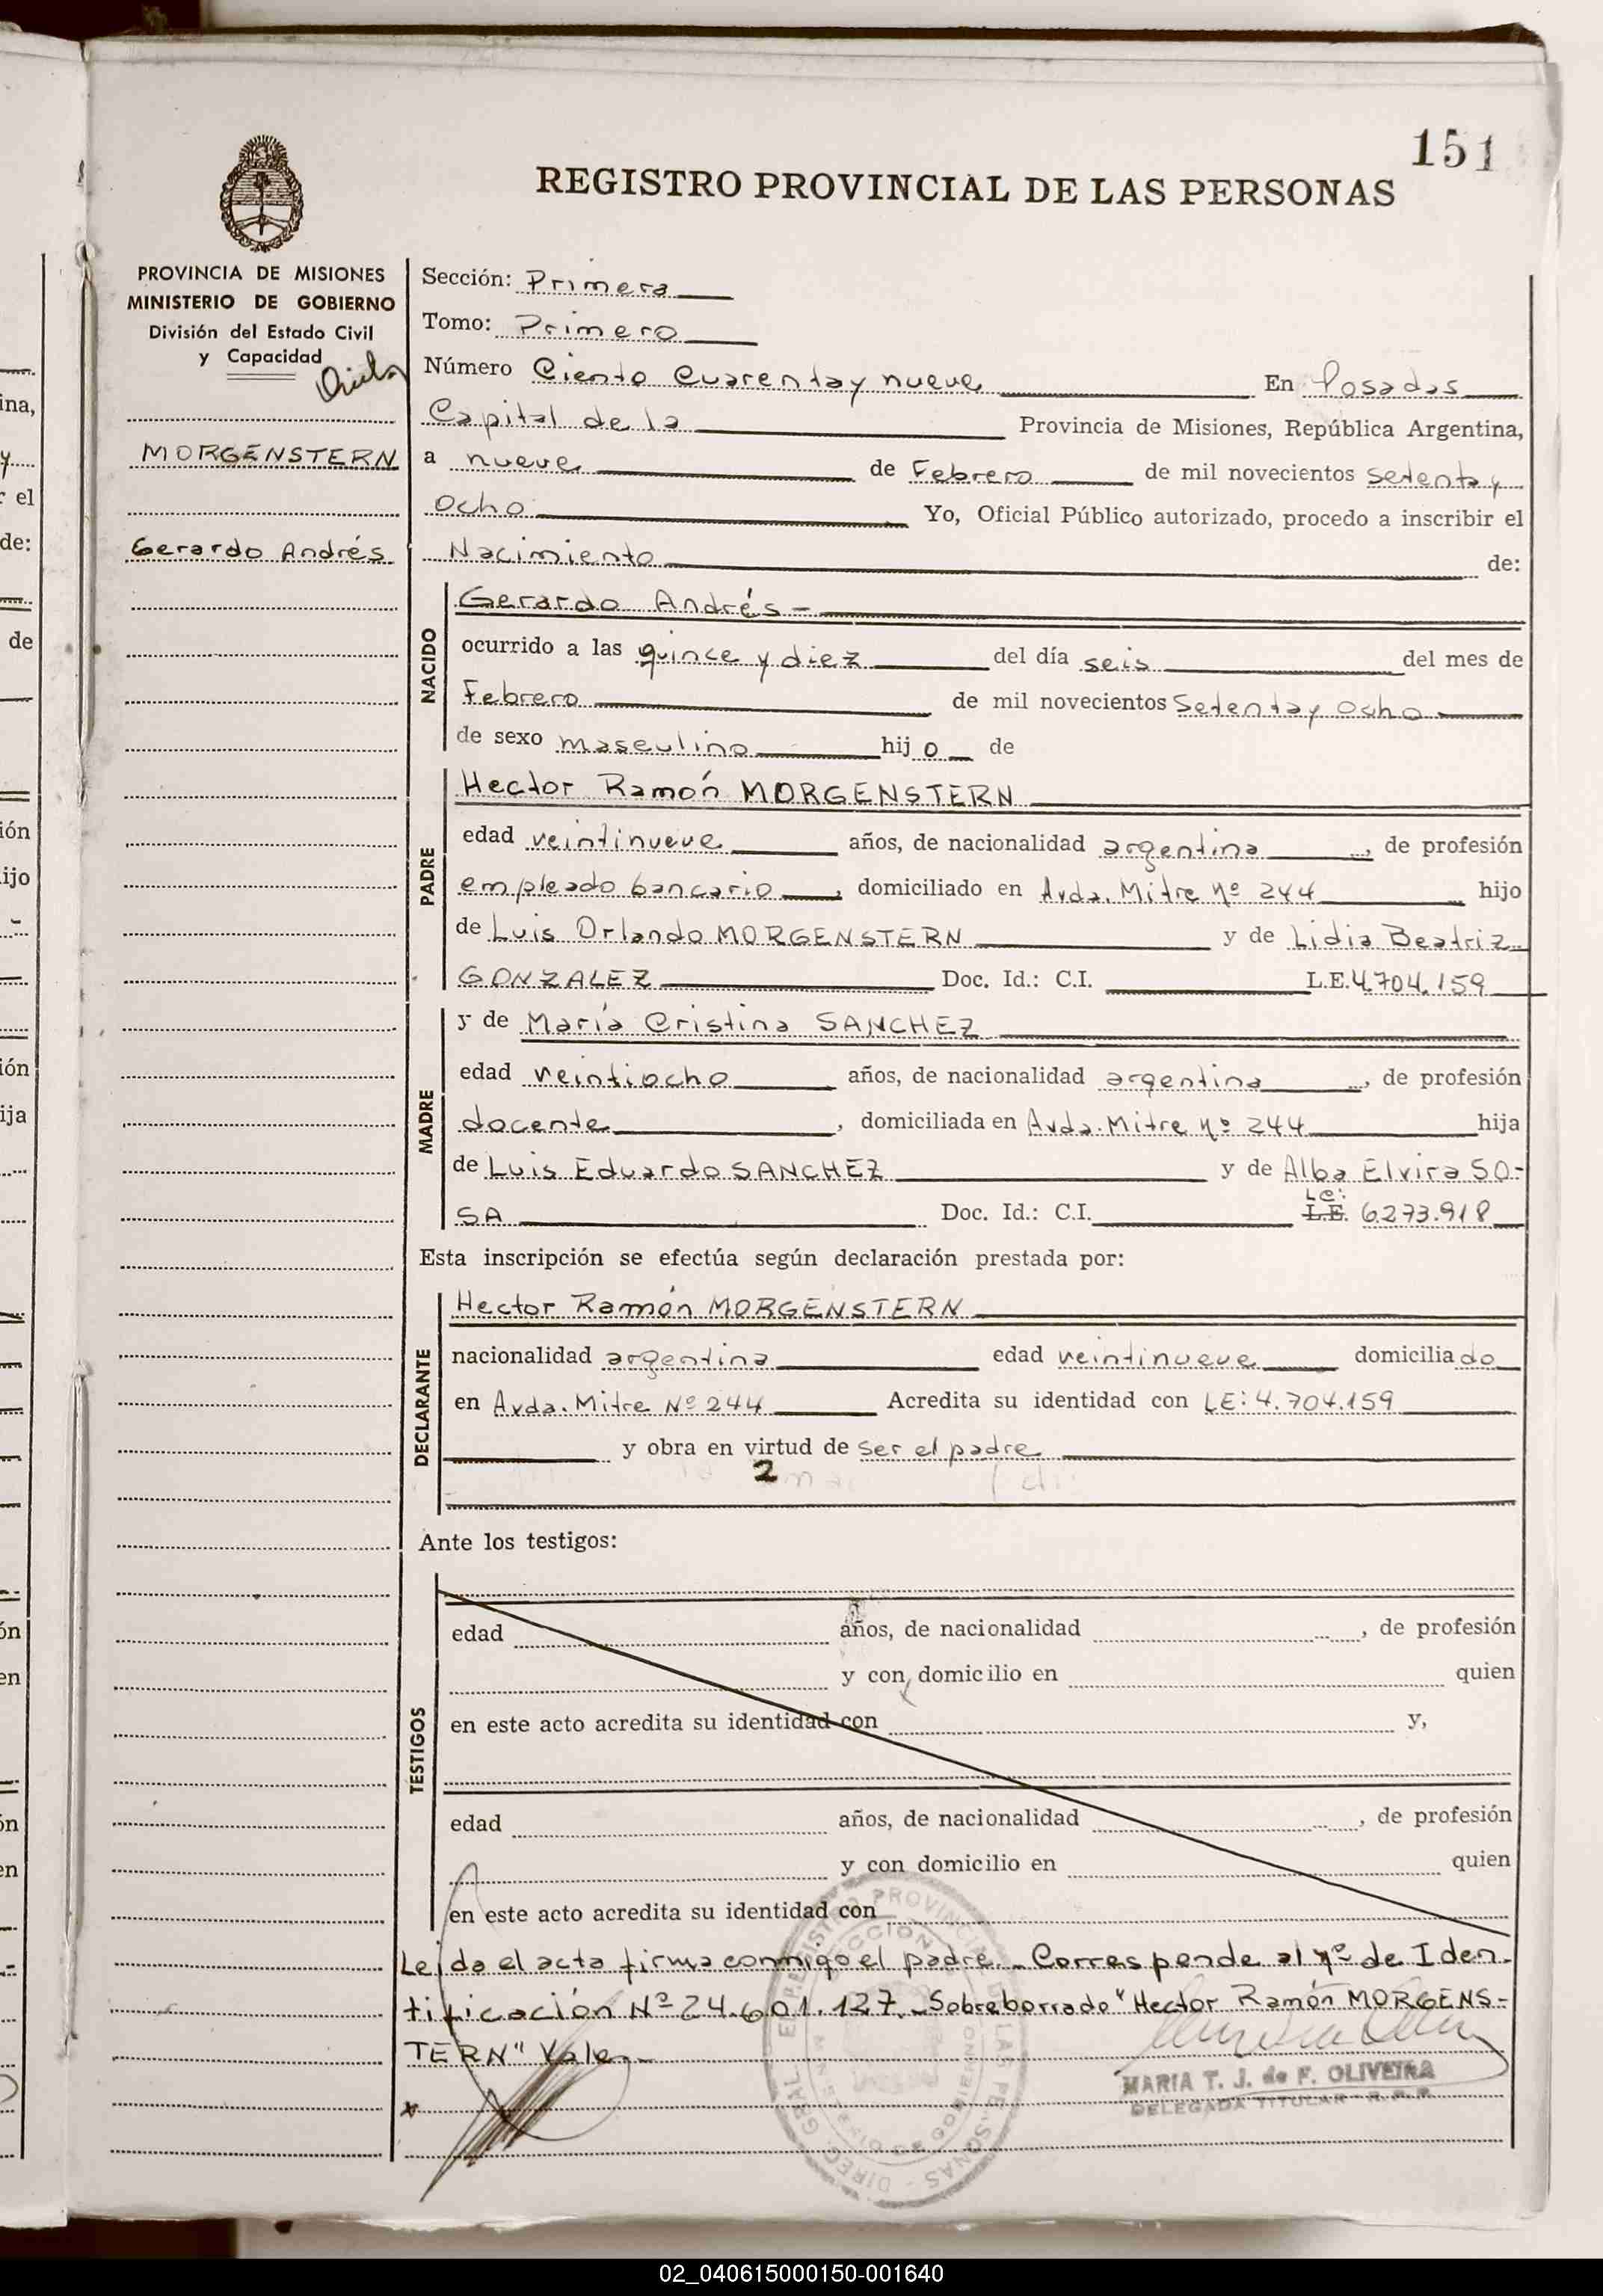 151
REGISTRO PROVINCIAL DE LAS PERSONAS
PROVINCIA DE MISIONES
MINISTERIO DE GOBIERNO
División del Estado Civil
y Capacidad
MORGENSTERN
Gerardo Andrés
Sección: Primera
Tomo: Primero
Número Ciento Cuarenta y nueve En Posadas
Capital de la Provincia de Misiones, República Argentina,
a nueve de Febrero de mil novecientos setenta y
ocho Yo, Oficial Público autorizado, procedo a inscribir el
Nacimiento de:
NACIDO
Gerardo Andrés -
ocurrido a las quince y diez del día seis del mes de
Febrero de mil novecientos Setenta y Ocho
de sexo masculino hijo de
PADRE
Hector Ramón MORGENSTERN
edad veintinueve años, de nacionalidad argentina, de profesión
empleado bancario, domiciliado en Avda. Mitre Nº 244 hijo
de Luis Orlando MORGENSTERN y de Lidia Beatriz
GONZALEZ Doc. Id.: C.I. L.E. 4.704.159
MADRE
y de María Cristina SANCHEZ
edad veintiocho años, de nacionalidad argentina, de profesión
docente, domiciliada en Avda. Mitre Nº 244 hija
de Luis Eduardo SANCHEZ y de Alba Elvira SO-
SA Doc. Id.: C.I. L.E. Lc: 6.273.918
Esta inscripción se efectúa según declaración prestada por:
DECLARANTE
Hector Ramón MORGENSTERN
nacionalidad argentina edad veintinueve domiciliado
en Avda. Mitre Nº 244 Acredita su identidad con LE: 4.704.159
y obra en virtud de ser el padre
2
Ante los testigos:
TESTIGOS
edad años, de nacionalidad , de profesión
y con domicilio en quien
en este acto acredita su identidad con y,
edad años, de nacionalidad , de profesión
y con domicilio en quien
en este acto acredita su identidad con
Leida el acta firma conmigo el padre.- Corresponde al Nº de Iden-
tificación Nº 24.601.127.- Sobreborrado "Hector Ramón MORGENS-
TERN" Vale.-
MARIA T. J. de F. OLIVEIRA
DELEGADA TITULAR R.P.P.
02_040615000150-001640